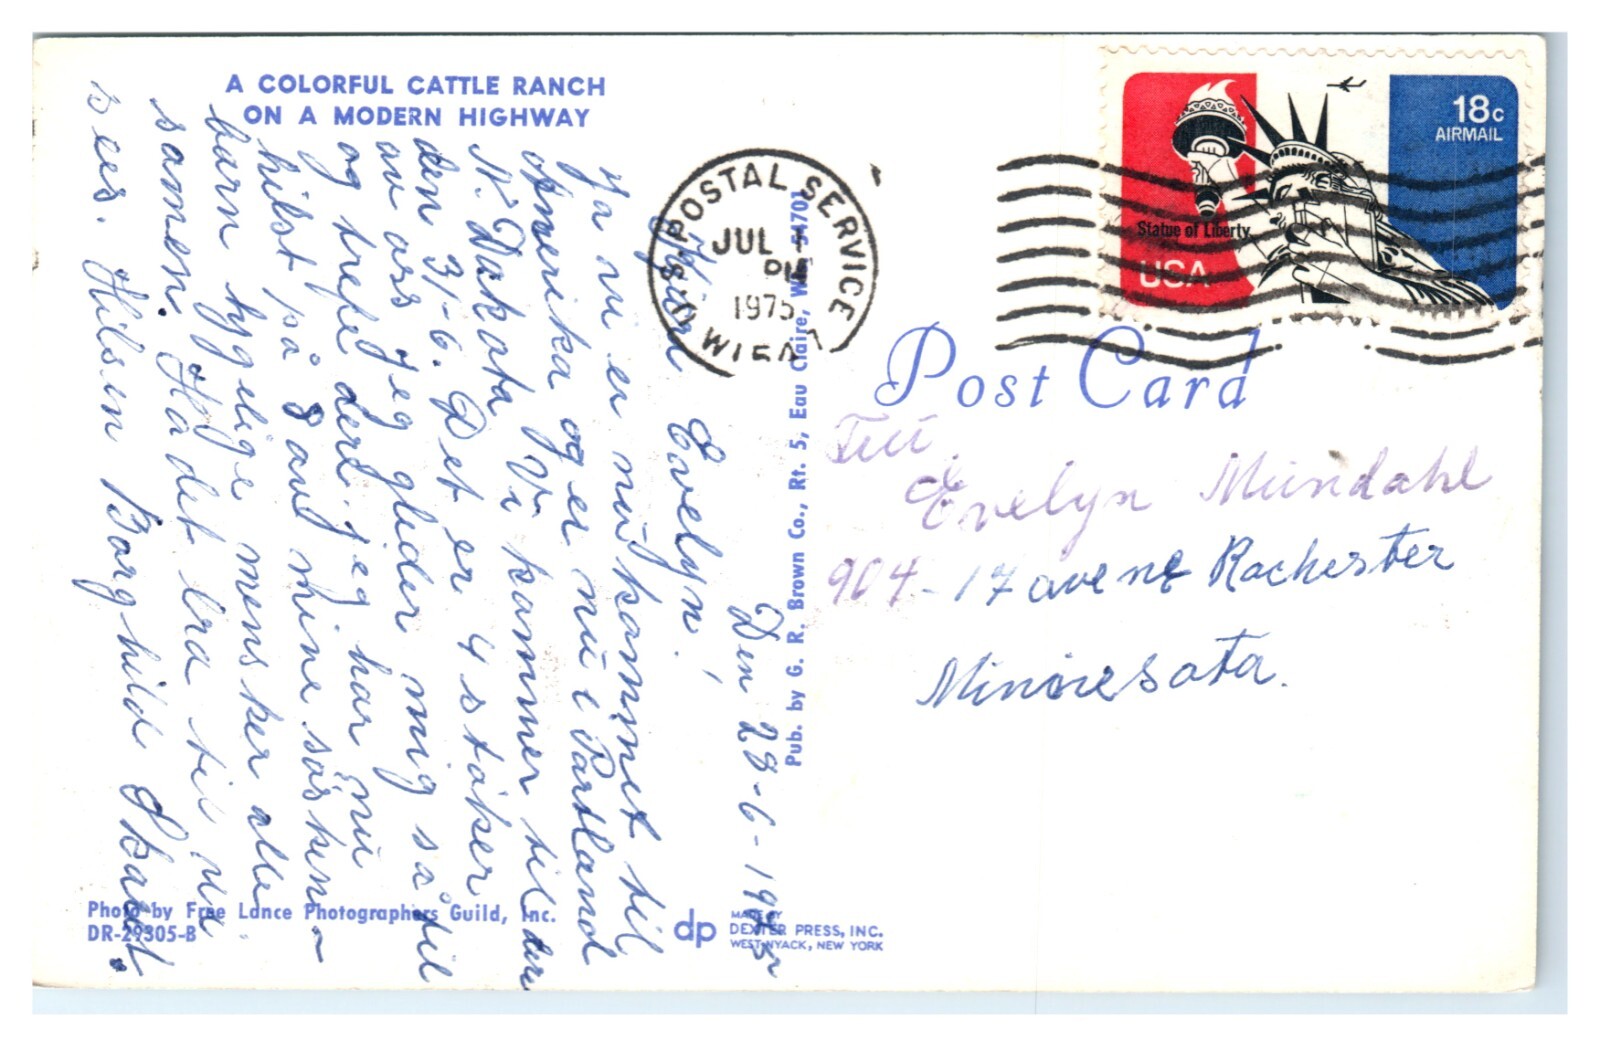 A COLORFUL CATTLE RANCH
ON A MODERN HIGHWAY
Den 28-6-1975
Kjære Evelyn!
Ja nu er nu kommet til
Amerika og er nu i Portland
N. Dakota Vi kommer til dere
den 3/-6. Det er 4 støker
av oss Jeg gleder mig så til
og trefe dere. Jeg har nu
hilst på 8 av mine søsken-
barn hygelige mensker alle
samen. Ha det bra til vi
sees. Hilsen Borghild Skaret.
Photo by Free Lance Photographers Guild, Inc.
DR-29305-B
dp
MADE BY
DEXTER PRESS, INC.
WEST NYACK, NEW YORK
Pub. by G. R. Brown Co., Rt. 5, Eau Claire, Wis. 54701
U.S. POSTAL SERVICE
JUL
PM
1975
18c
AIRMAIL
Statue of Liberty
USA
Post Card
Till
Evelyn Mundahl
904-17 ave ne Rochester
Minnesota.